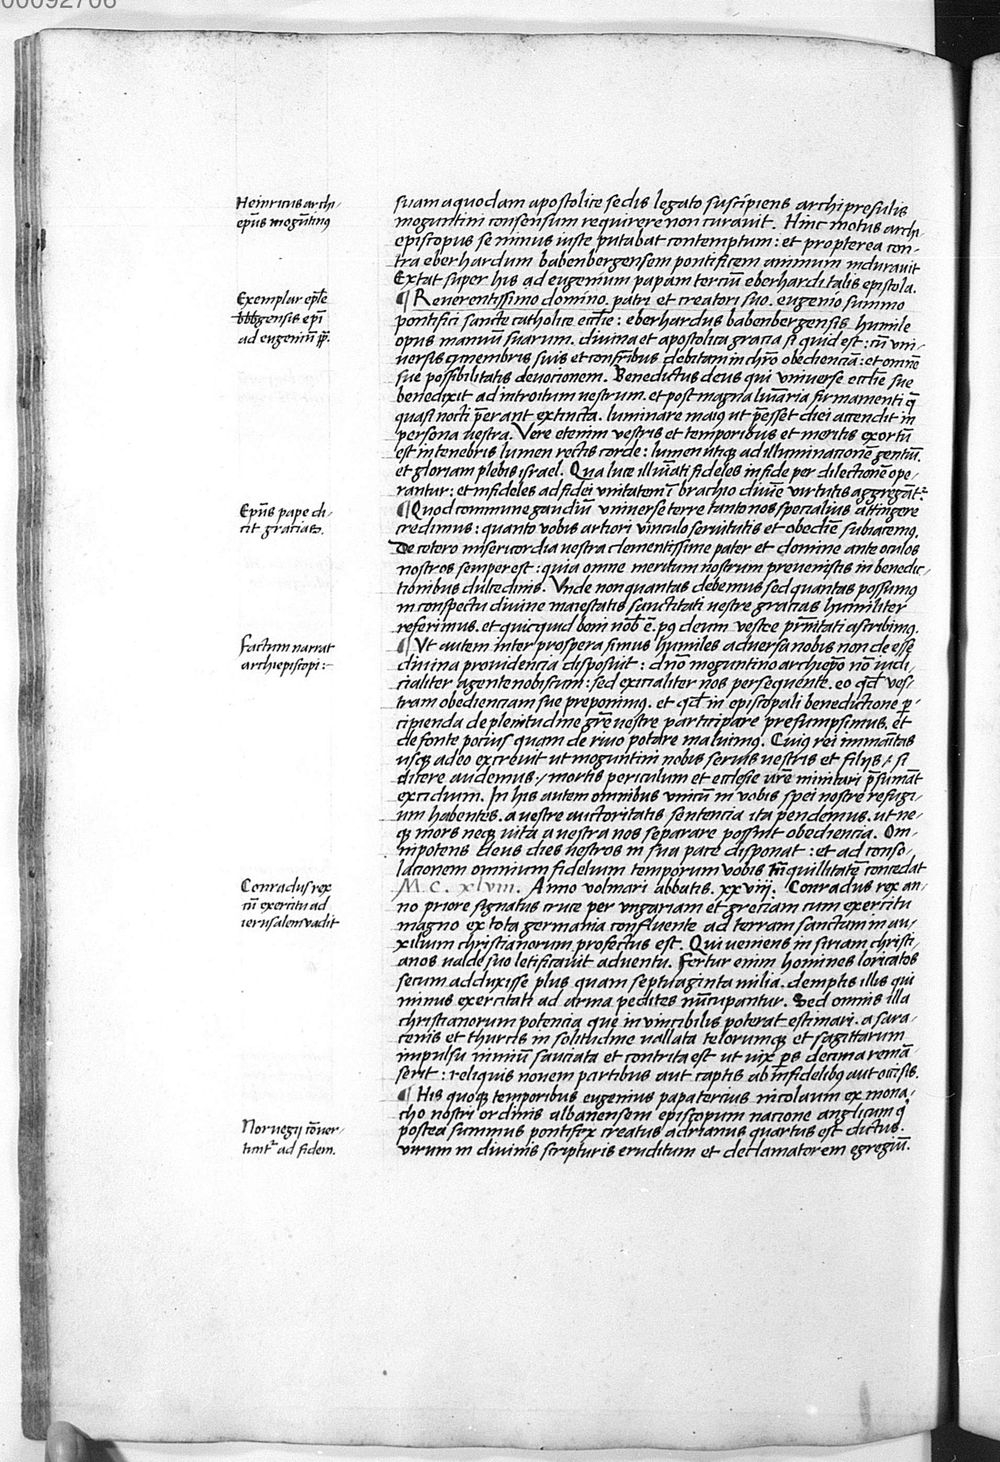 00092706
Heinricus archi-
ep̄us mogūtinꝰ
suam a quodam apostolice sedis legato suscipiens archipresulis
moguntini consensum requirere non curavit. Hinc motus archi-
episcopus se minus iuste putabat contemptum: et propterea con-
tra eberhardum babenbergensem pontificem animum induravit
Extat super his ad eugenium papam terciū eberhardi talis epistola.
Exemplar ep̄le
bbb̄gensis ep̄i
ad eugeniū p̄p.
¶ Reuerentissimo domino. patri et creatori suo. eugenio summo
pontifici sancte catholice eccl̄ie: eberhardus babenbergensis humile
opus manuū suarum. divina et apostolica gracia si quid est: cū vni-
versis q̄ membris suis et confr̄ibus debitam in chrō obedienciā: et omnē
sue possibilitatis devocionem. Benedictus deus qui vniverse eccl̄ie sue
benedixit ad introitum vestrum. et post magna luīaria firmamenti q̄
quasi nocti p̄erant extincta. luminare maiꝰ ut p̄esset diei accendit in
persona vestra. Vere etenim vestris et temporibus et meritis exortū
est in tenebris lumen rectis corde: lumen utiqꝫ ad illuminacionē gentiū.
et gloriam plebis israel. Qua luce illuīati fideles in fide per dilectionē ope-
rantur: et infideles ad fidei vnitatem ī brachio diuīe virtutis aggregāt̄.
Ep̄us pape di-
cit gracias.
¶ Quod commune gaudiū vniverse terre tanto nos specialius attingere
credimus: quanto vobis artiori vinculo servitutis et obedīe subiacemꝰ.
De cetero misericordia vestra clementissime pater et domine ante oculos
nostros semper est: quia omne meritum nostrum prevenistis in benedic-
tionibus dulcedinis. Vnde non quantas debemus sed quantas possumꝰ
in conspectu divine maiestatis sanctitati vestre gracias humiliter
referimus. et quicquid boni nob̄ ē. pꝰ deum vestre pr̄nitati ascribimꝰ.
Factum narrat
archiepiscopi:-
¶ Vt autem inter prospera simus humiles adversa nobis non deesse
divina providencia disposuit: dn̄o moguntino archiep̄o nō iudi-
cialiter agente nobiscum: sed exicialiter nos persequente. eo qd̄ ves-
tram obedienciam sue preponimꝰ. et qd̄ in episcopali benedictione p̄-
cipienda de plenitudine gr̄e vestre participare presumpsimus. et
de fonte pocius quam de rivo potare maluimꝰ. Cuiꝰ rei immāitas
usqꝫ adeo excrevit ut moguntini nobis servis vestris et filijs / si
dicere audemus / mortis periculum et ecclesie vr̄e minitari p̄sumāt
excidium. In his autem omnibus vnicū in vobis spei nostre refugi-
um habentes. a vestre auctoritatis sentencia ita pendemus. ut ne-
qꝫ mors neqꝫ vita a vestra nos separare possint obediencia. Om-
nipotens deus dies vestros in sua pace disponat: et ad conso-
lacionem omnium fidelium temporum vobis tranquillitatē concedat
Conradus rex
cū exercitu ad
ierusalem vadit
M. C. xlviii. Anno volmari abbatis. xxviij. Conradus rex an-
no priore signatus cruce per vngariam et greciam cum exercitu
magno ex tota germania confluente ad terram sanctam in au-
xilium christianorum profectus est. Qui veniens in siriam christi-
anos valde suo letificavit adventu. Fertur enim homines loricatos
secum adduxisse plus quam septuaginta milia. demptis illis qui
minus exercitati ad arma pedites nūcupantur. Sed omnis illa
christianorum potencia que invincibilis poterat estimari. a sara-
cenis et thurcis in solitudine vallata telorumqꝫ et sagittarum
impulsu nimiū sauciata et contrita est ut vix p̄s decima remā-
serit: reliquis novem partibus aut captis ab infidelibꝰ aut occisis.
¶ His quoqꝫ temporibus eugenius papa tercius nicolaum ex mona-
cho nostri ordinis albanensem episcopum nacione anglicum q̄
Norvegij cōver-
tunt̄ ad fidem.
postea summus pontifex creatus adrianus quartus est dictus.
virum in divinis scripturis eruditum et declamatorem egregiū.